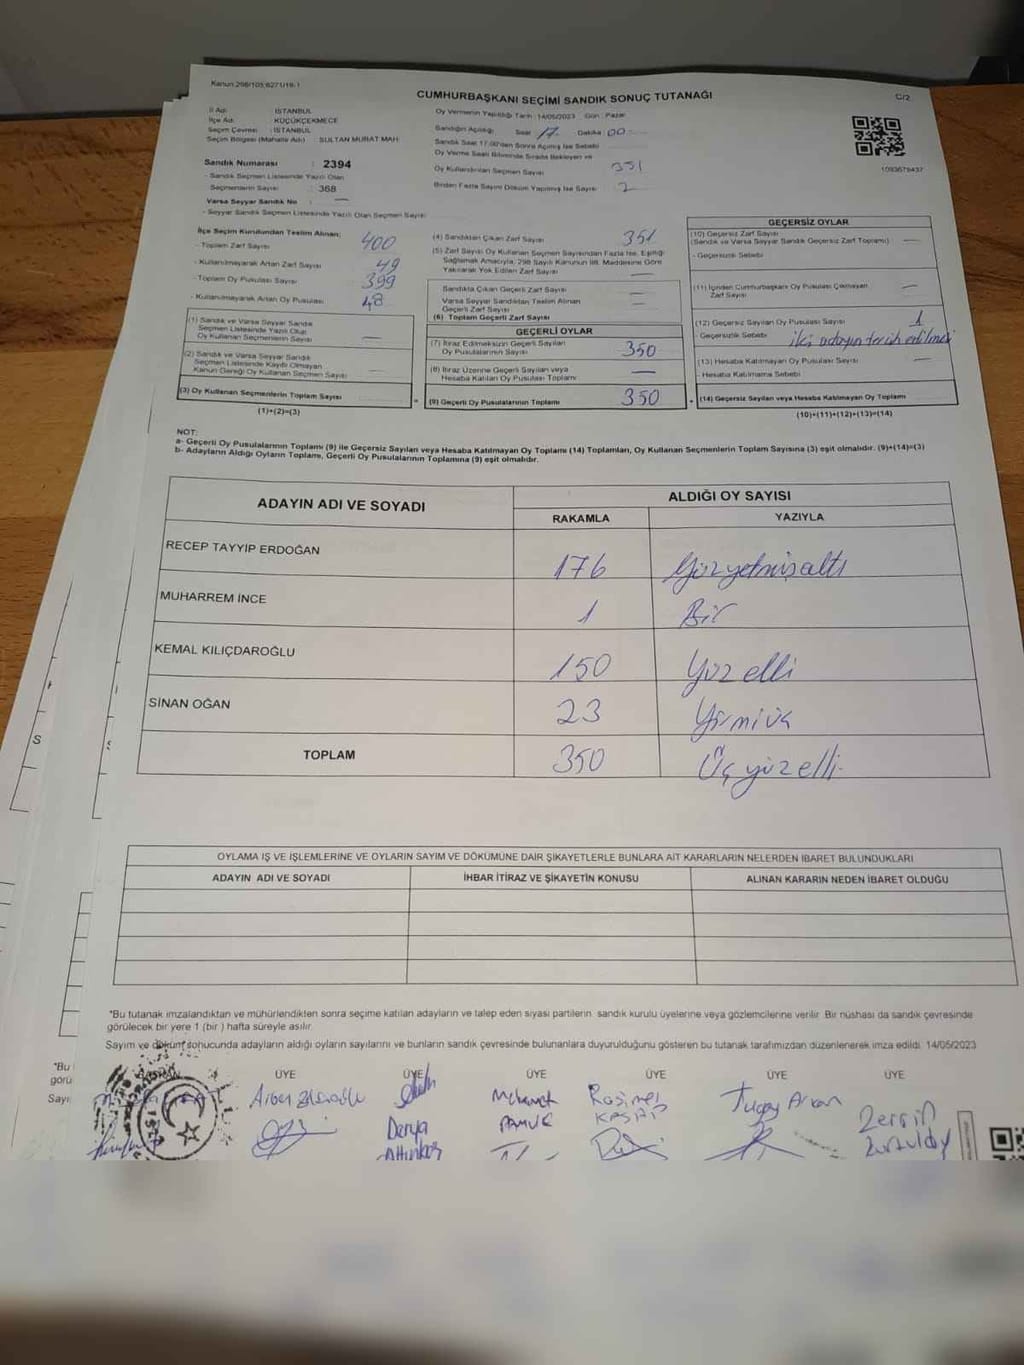 Kanun:298/105;6271/19-1
CUMHURBAŞKANI SEÇİMİ SANDIK SONUÇ TUTANAĞI
C/2
İl Adı : İSTANBUL
İlçe Adı : KÜÇÜKÇEKMECE
Seçim Çevresi : İSTANBUL
Seçim Bölgesi (Mahalle Adı) : SULTAN MURAT MAH
Sandık Numarası : 2394
- Sandık Seçmen Listesinde Yazılı Olan
Seçmenlerin Sayısı : 368
Varsa Seyyar Sandık No : —
- Seyyar Sandık Seçmen Listesinde Yazılı Olan Seçmen Sayısı
Oy Vermenin Yapıldığı Tarih : 14/05/2023 Gün : Pazar
Sandığın Açıldığı Saat 17 Dakika 00
Sandık Saat 17.00'den Sonra Açılmış İse Sebebi
Oy Verme Saati Bitiminde Sırada Bekleyen ve
Oy Kullandırılan Seçmen Sayısı 351
Birden Fazla Sayım Döküm Yapılmış İse Sayısı 2
1093679437
İlçe Seçim Kurulundan Teslim Alınan;
- Toplam Zarf Sayısı 400
- Kullanılmayarak Artan Zarf Sayısı 49
- Toplam Oy Pusulası Sayısı 399
- Kullanılmayarak Artan Oy Pusulası 48
(1) Sandık ve Varsa Seyyar Sandık
Seçmen Listesinde Yazılı Olup
Oy Kullanan Seçmenlerin Sayısı —
(2) Sandık ve Varsa Seyyar Sandık
Seçmen Listesinde Kaydı Olmayan
Kanun Gereği Oy Kullanan Seçmen Sayısı —
(3) Oy Kullanan Seçmenlerin Toplam Sayısı
(1)+(2)=(3)
(4) Sandıktan Çıkan Zarf Sayısı 351
(5) Zarf Sayısı Oy Kullanan Seçmen Sayısından Fazla İse, Eşitliği
Sağlamak Amacıyla, 298 Sayılı Kanunun 98. Maddesine Göre
Yakılarak Yok Edilen Zarf Sayısı —
Sandıkta Çıkan Geçerli Zarf Sayısı —
Varsa Seyyar Sandıktan Teslim Alınan
Geçerli Zarf Sayısı —
(6) Toplam Geçerli Zarf Sayısı
GEÇERLİ OYLAR
(7) İtiraz Edilmeksizin Geçerli Sayılan
Oy Pusulalarının Sayısı 350
(8) İtiraz Üzerine Geçerli Sayılan veya
Hesaba Katılan Oy Pusulası Toplamı —
(9) Geçerli Oy Pusulalarının Toplamı 350
GEÇERSİZ OYLAR
(10) Geçersiz Zarf Sayısı
(Sandık ve Varsa Seyyar Sandık Geçersiz Zarf Toplamı) —
- Geçersizlik Sebebi
(11) İçinden Cumhurbaşkanı Oy Pusulası Çıkmayan
Zarf Sayısı —
(12) Geçersiz Sayılan Oy Pusulası Sayısı 1
- Geçersizlik Sebebi iki adayın tercih edilmesi
(13) Hesaba Katılmayan Oy Pusulası Sayısı —
- Hesaba Katılmama Sebebi
(14) Geçersiz Sayılan veya Hesaba Katılmayan Oy Toplamı
(10)+(11)+(12)+(13)=(14)
NOT:
a- Geçerli Oy Pusulalarının Toplamı (9) ile Geçersiz Sayılan veya Hesaba Katılmayan Oy Toplamı (14) Toplamları, Oy Kullanan Seçmenlerin Toplam Sayısına (3) eşit olmalıdır. (9)+(14)=(3)
b- Adayların Aldığı Oyların Toplamı, Geçerli Oy Pusulalarının Toplamına (9) eşit olmalıdır.
ADAYIN ADI VE SOYADI
ALDIĞI OY SAYISI
RAKAMLA YAZIYLA
RECEP TAYYİP ERDOĞAN 176 Yüzyetmişaltı
MUHARREM İNCE 1 Bir
KEMAL KILIÇDAROĞLU 150 Yüz elli
SİNAN OĞAN 23 Yirmi üç
TOPLAM 350 Üç yüz elli
OYLAMA İŞ VE İŞLEMLERİNE VE OYLARIN SAYIM VE DÖKÜMÜNE DAİR ŞİKAYETLERLE BUNLARA AİT KARARLARIN NELERDEN İBARET BULUNDUKLARI
ADAYIN ADI VE SOYADI İHBAR İTİRAZ VE ŞİKAYETİN KONUSU ALINAN KARARIN NEDEN İBARET OLDUĞU
*Bu tutanak imzalandıktan ve mühürlendikten sonra seçime katılan adayların ve talep eden siyasi partilerin sandık kurulu üyelerine veya gözlemcilerine verilir. Bir nüshası da sandık çevresinde
görülecek bir yere 1 (bir ) hafta süreyle asılır.
Sayım ve döküm sonucunda adayların aldığı oyların sayılarını ve bunların sandık çevresinde bulunanlara duyurulduğunu gösteren bu tutanak tarafımızdan düzenlenerek imza edildi. 14/05/2023
BAŞKAN ÜYE ÜYE ÜYE ÜYE ÜYE ÜYE
Derya
Mehmet
PAMUK
Tugay Arkan